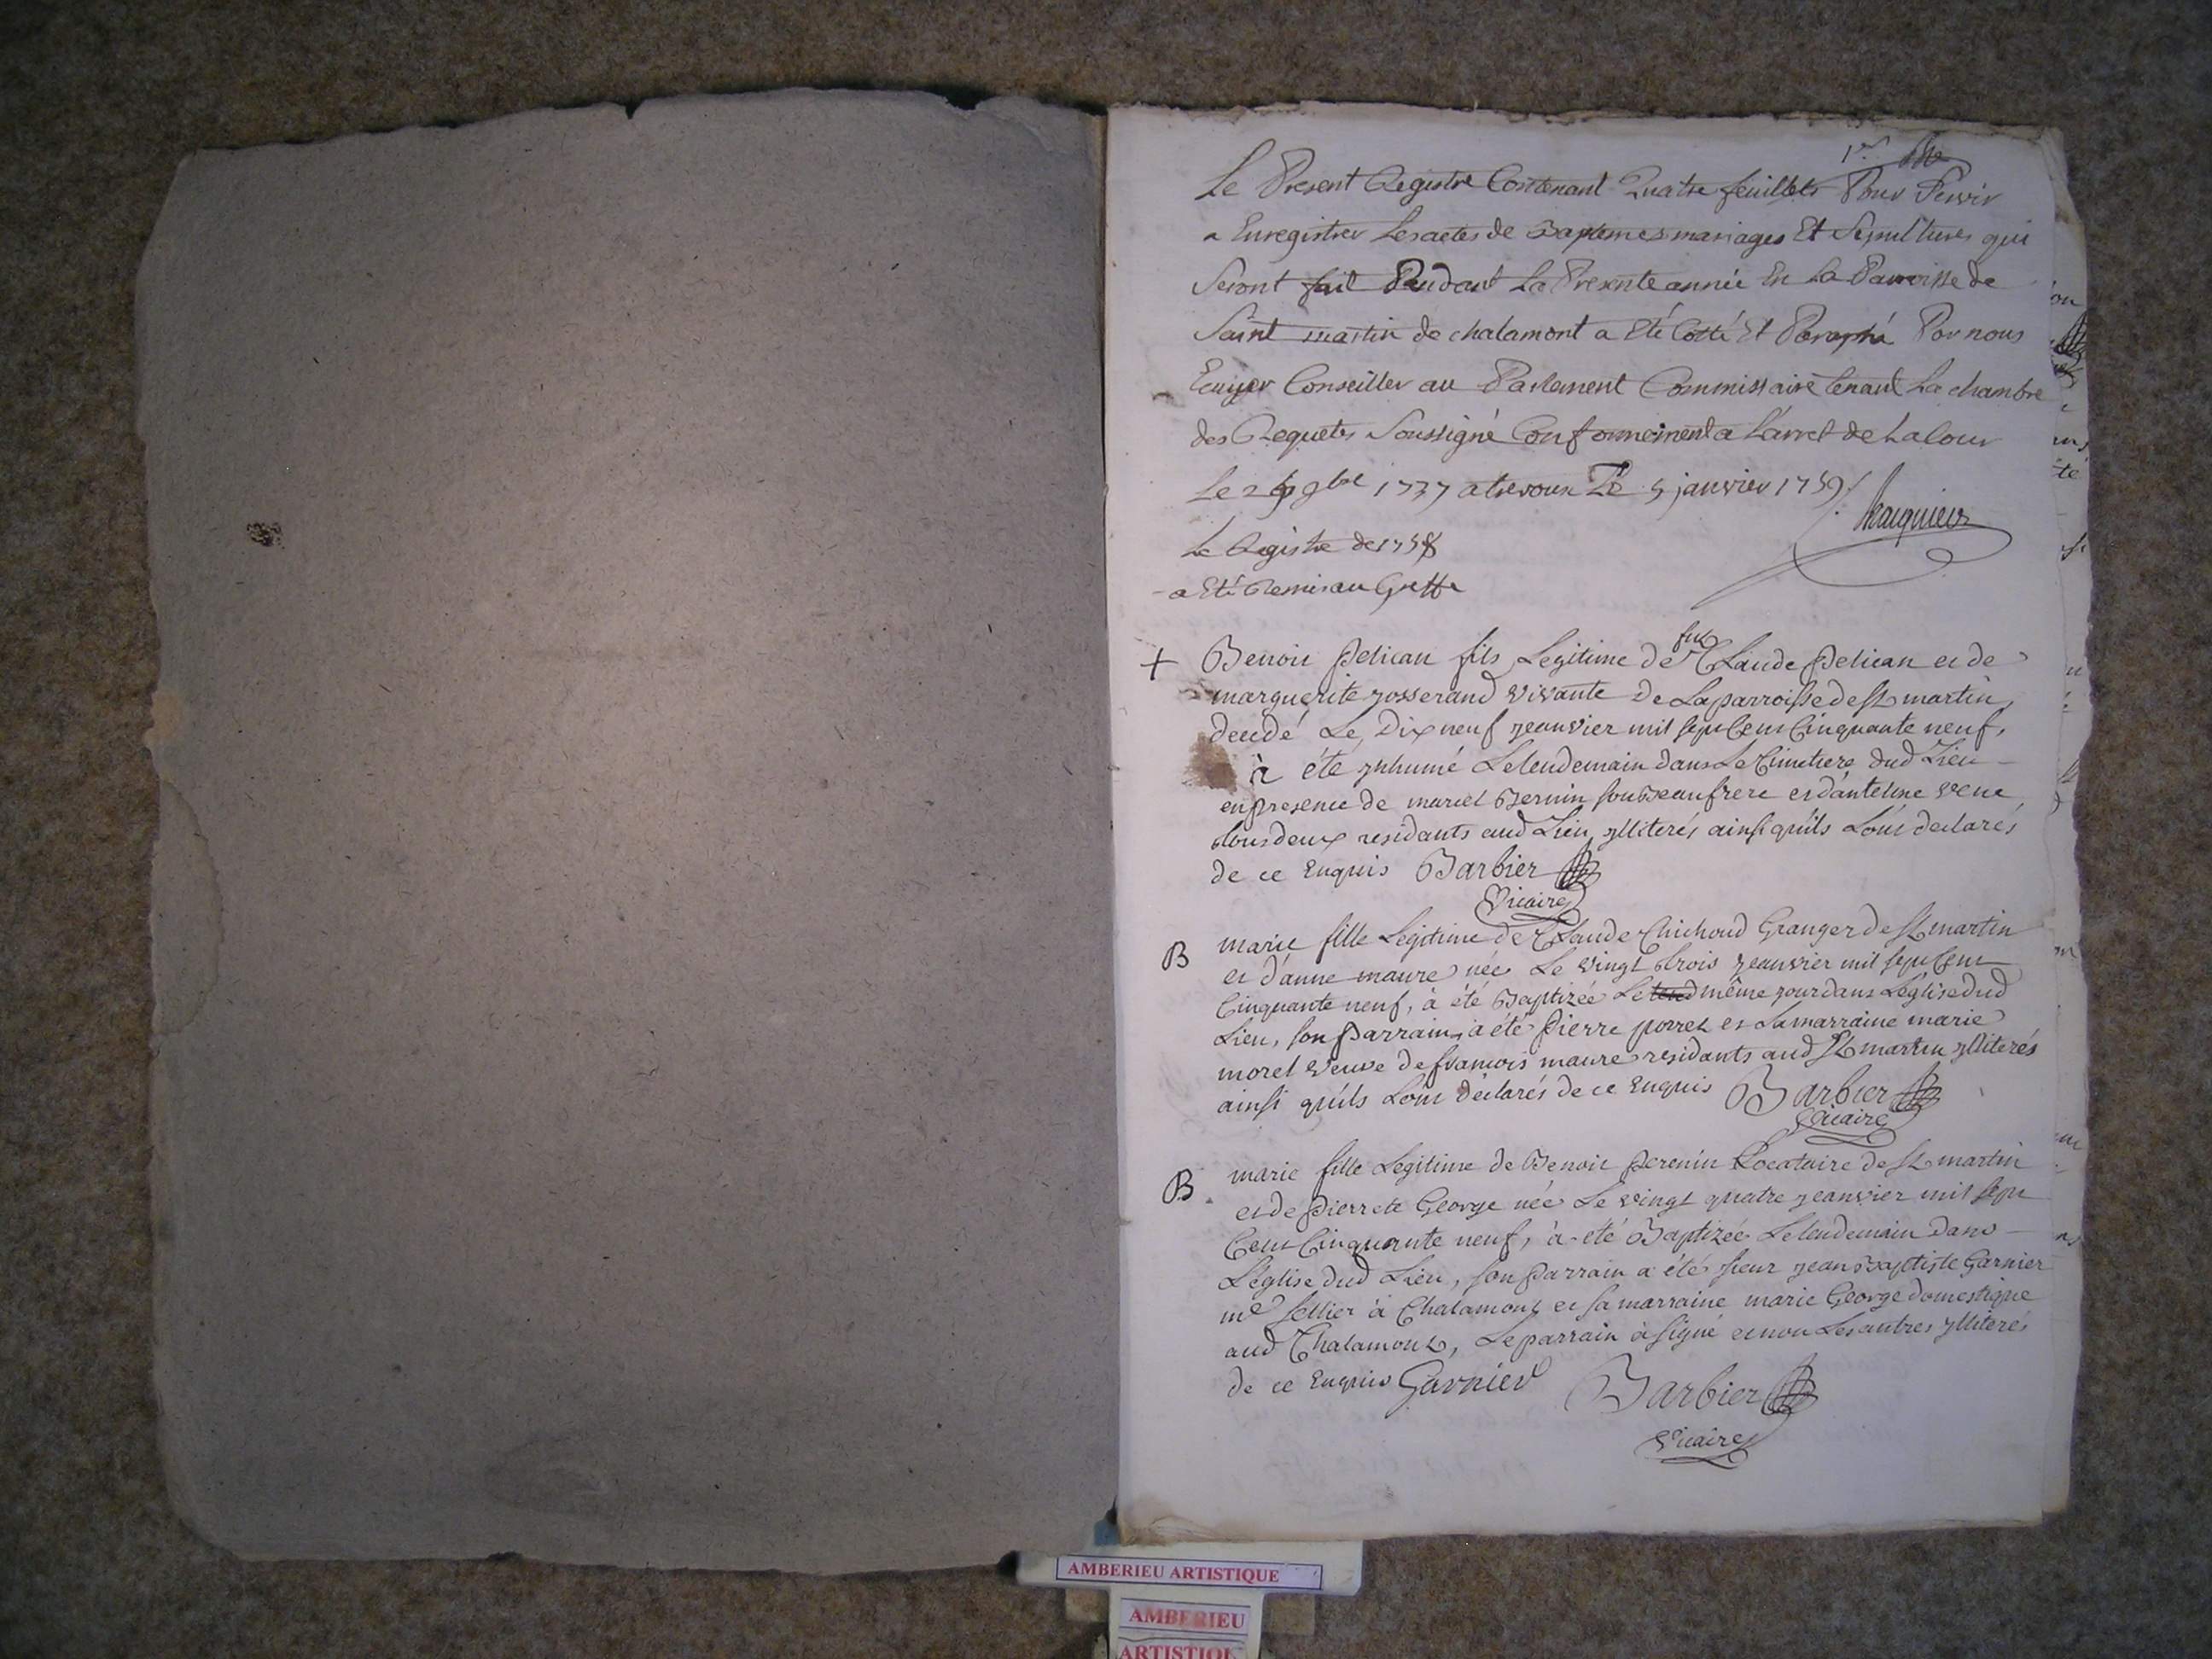 1er
Le Present Registre Contenant Quatre feuillets Pour Servir
a Enregistrer Les actes de Baptemes mariages Et Sepultures qui
Seront fait Pendant La Presente année En La Parroisse de
Saint martin de chalamont a Eté Cotté Et Paraphé Par nous
Ecuyer Conseiller au Parlement Commissaire tenant La chambre
des Requetes Soussigné Conformement a L'arret de La Cour
Le 9bre 1737 a trevoux Le 5 janvier 1759
Le Registre de 1758
a Eté Remis au Greffe
fut
+ Benoit Pelican fils Legitime de Claude Pelican et de
marguerite josserand vivante de La parroisse de St martin
decedé Le Dix neuf jeanvier mil sept Cent Cinquante neuf,
à été ynhumé Le lendemain dans Le Cimetiere dud Lieu
en presence de Bernin son Beaufrere et d'antelme
tous deux residants aud Lieu ylliterés ainsi qu'ils L'ont declarés
de ce Enquis Barbier
Vicaire
B marie fille Legitime de Claude Chichoud Granger de St martin
et d'anne maure née Le vingt trois jeanvier mil sept Cent
Cinquante neuf, à été Baptizée Le lend même jour dans L'église dud
Lieu, son parrain à été pierre porret et La marraine marie
morel veuve de francois maure residants aud St martin yllitterés
ainsi qu'ils L'ont déclarés de ce Enquis Barbier
Vicaire
B marie fille Legitime de Benoit perenin Locataire de St martin
et de pierrete George née Le vingt quatre jeanvier mil sept
Cent Cinquante neuf, à été Baptizée Le lendemain dans
L'église dud Lieu, son parrain a été sieur jean Baptiste Garnier
me sellier à Chalamont et sa marraine marie George domestique
aud Chalamont, Le parrain à signé et non Les autres ylliterés
de ce Enquis Garnier Barbier
Vicaire
AMBERIEU ARTISTIQUE
AMBERIEU